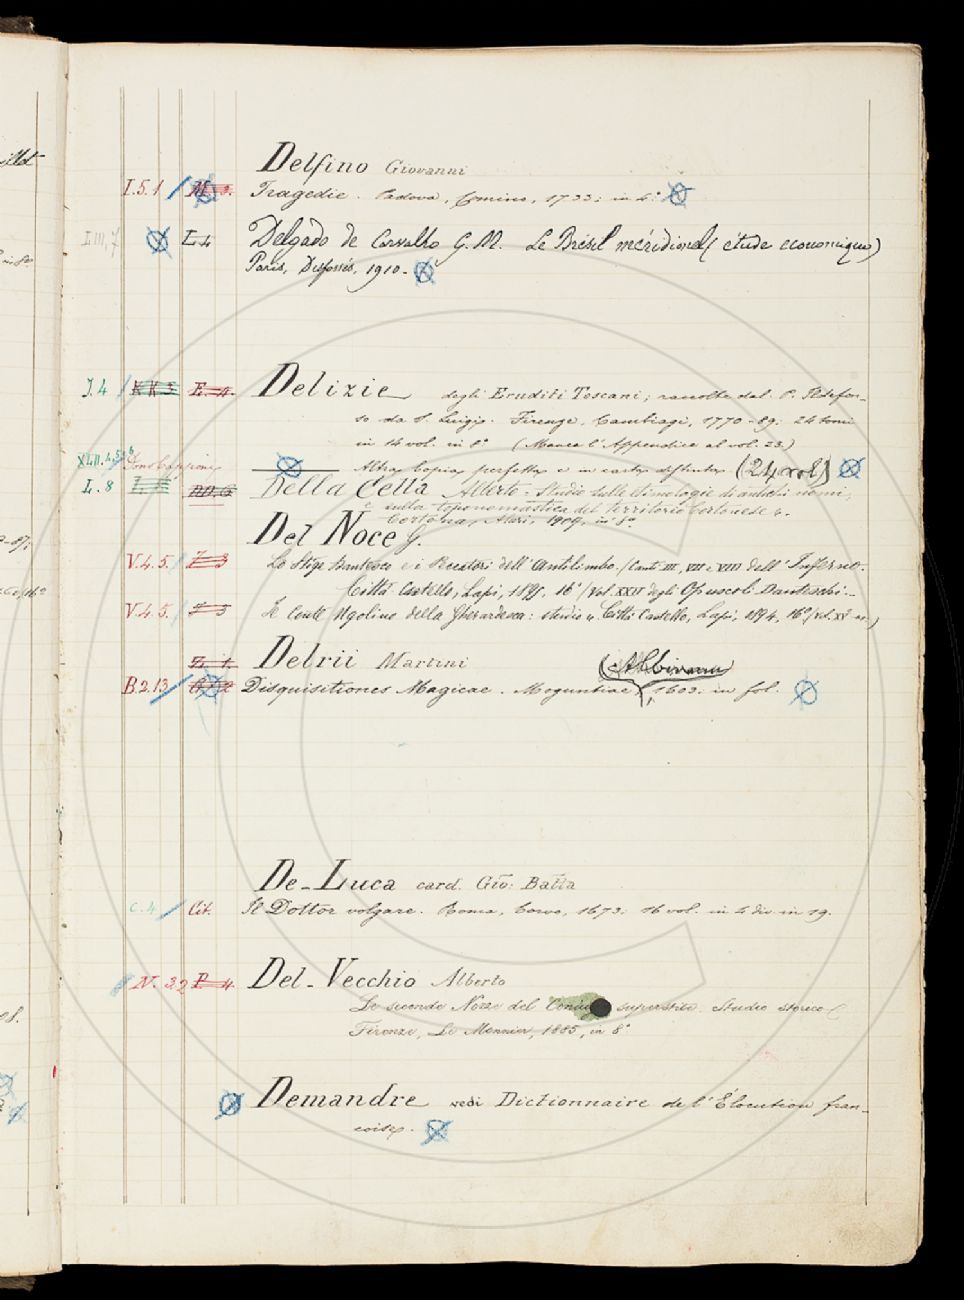 Delfino Giovanni
I.5.1 Tragedie. Padova, Comino, 1733; in 4.°
I.III,7 L 4 Delgado de Carvalho G. M. Le Brésil méridional (étude economique)
Paris, Desfossés, 1910.
J.4 KK3 E. 4. Delizie degli Eruditi Toscani; raccolte dal P. Ildefon-
so da S. Luigi. Firenze, Cambiagi, 1770-89; 24 tomi
in 14 vol. in 8.° (Manca l'Appendice al vol. 23)
Altra copia perfetta e in carta distinta (24 vol.)
L. 8 Della Cella Alberto - Studio sulle etimologie di antichi nomi,
e sulla toponomastica del territorio Cortonese
Cortona, Alari, 1909, in 8°
Del Noce G.
V.4.5. Z 3 Lo Stige Dantesco e i Peccatori dell'Antilimbo. (Canti III, VII e VIII dell'Inferno.
Città Castello, Lapi, 1895. 16° (Vol. XXIV degli Opuscoli Danteschi.
V.4.5. Z 3 Il Conte Ugolino della Gherardesca: studio Città Castello, Lapi, 1894, 16°
Z. 1. Delrii Martini
B.2.13 Disquisitiones Magicae. Moguntiae, 1603. in fol.
De-Luca card. Gio: Batta
C. 4 Cit. Il Dottor volgare. Roma, Corvo, 1673; 16 vol. in 4 div. in 19.
N. 32 P 4. Del-Vecchio Alberto
Le seconde Nozze del superstite. Studio storico
Firenze, Le Monnier, 1885, in 8°
Demandre vedi Dictionnaire de l'Élocution fran-
coise.